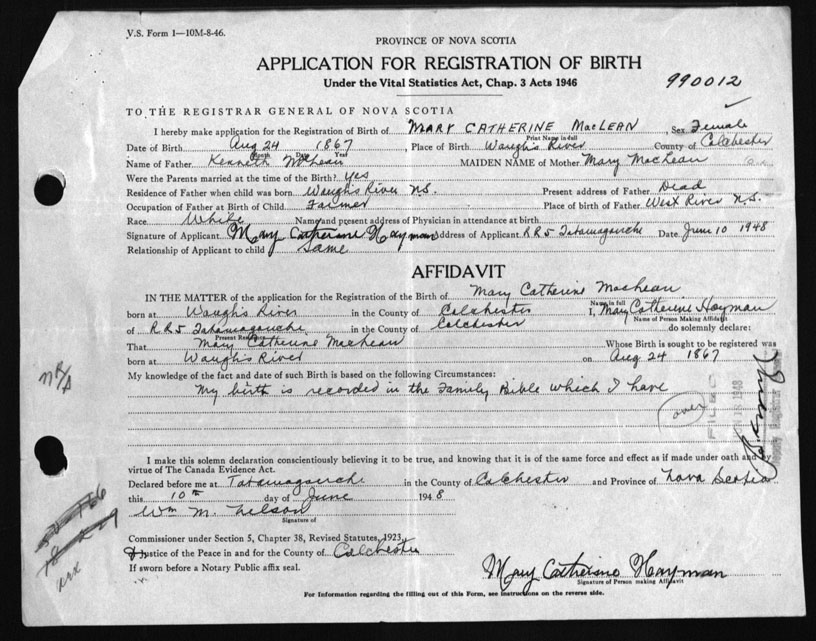 V.S. Form 1—10M-8-46.
PROVINCE OF NOVA SCOTIA
APPLICATION FOR REGISTRATION OF BIRTH
Under the Vital Statistics Act, Chap. 3 Acts 1946
990012
TO THE REGISTRAR GENERAL OF NOVA SCOTIA
I hereby make application for the Registration of Birth of MARY CATHERINE MacLEAN, Sex Female
Print Name in full
Date of Birth Aug 24 1867, Place of Birth Waugh's River County of Colchester
Month Date Year
Name of Father Kenneth McLean MAIDEN NAME of Mother Mary MacLean
Were the Parents married at the time of the Birth? Yes
Residence of Father when child was born Waugh's River N.S. Present address of Father Dead
Occupation of Father at Birth of Child Farmer Place of birth of Father West River N.S.
Race White Name and present address of Physician in attendance at birth
Signature of Applicant Mary Catherine Hayman Address of Applicant R R 5 Tatamagouche Date June 10 1948
Relationship of Applicant to child Same
AFFIDAVIT
IN THE MATTER of the application for the Registration of the Birth of Mary Catherine MacLean
Name in full
born at Waugh's River in the County of Colchester I, Mary Catherine Hayman
Name of Person Making Affidavit
of R.R 5 Tatamagouche in the County of Colchester do solemnly declare:
Present Residence
That Mary Catherine MacLean Whose Birth is sought to be registered was
born at Waugh's River on Aug 24 1867
My knowledge of the fact and date of such Birth is based on the following Circumstances:
My birth is recorded in the Family Bible which I have
over
FILED
1948
I make this solemn declaration conscientiously believing it to be true, and knowing that it is of the same force and effect as if made under oath and by
virtue of The Canada Evidence Act.
Declared before me at Tatamagouche in the County of Colchester and Province of Nova Scotia
this 10th day of June 1948
Wm M. Nelson
Signature of
Commissioner under Section 5, Chapter 38, Revised Statutes, 1923,
Justice of the Peace in and for the County of Colchester
If sworn before a Notary Public affix seal.
Mary Catherine Hayman
Signature of Person making Affidavit
For Information regarding the filling out of this Form, see instructions on the reverse side.